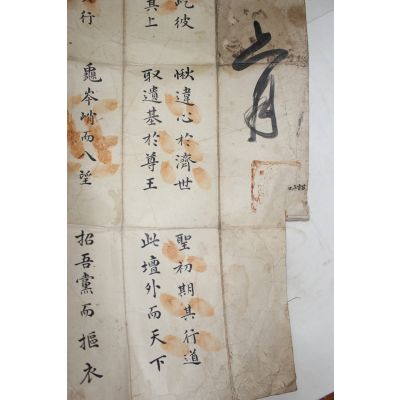 彼
愀違心於濟世
聖初期其行道
其上
取遺基於尊王
此壇外而天下
行
龜岑峭而入望
招吾黨而摳衣